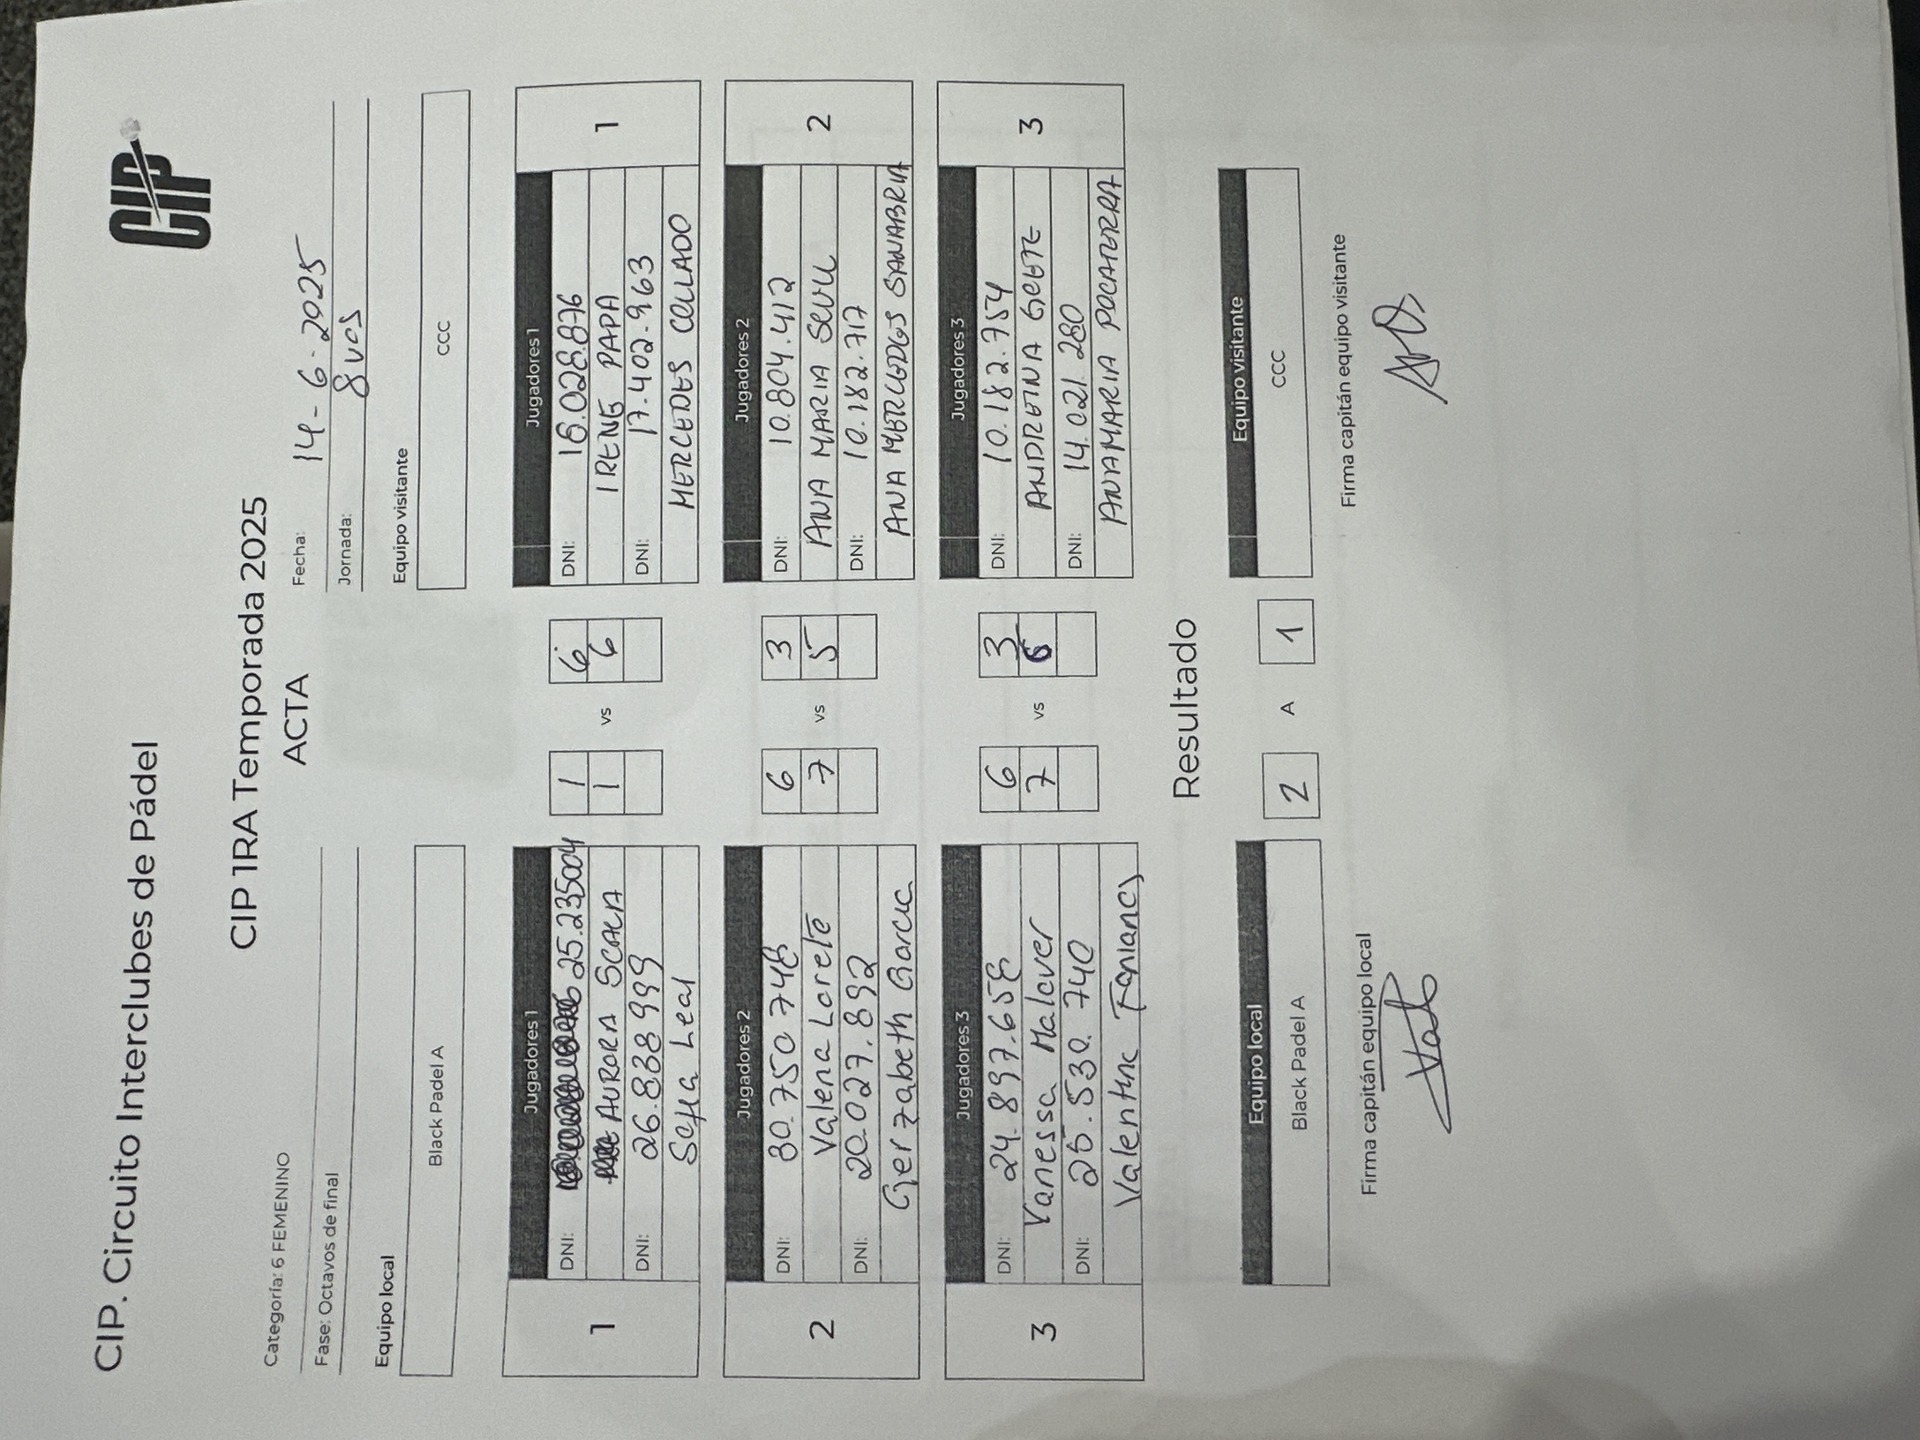 CIP. Circuito Interclubes de Pádel
CIP
CIP 1RA Temporada 2025
ACTA
Categoría: 6 FEMENINO
Fecha: 14-6-2025
Fase: Octavos de final
Jornada: 8vos
Equipo local
Equipo visitante
Black Padel A
CCC
Jugadores 1
Jugadores 1
1
DNI: 25.235004
1
6
DNI: 16.028.876
1
AURORA SCALA
1
vs
6
IRENE PAPA
DNI: 26.838999
DNI: 17.402.963
Sofia Leal
MERCEDES COLLADO
Jugadores 2
Jugadores 2
2
DNI: 30.750748
6
3
DNI: 10.804.412
2
Valeria Lorete
7
vs
5
ANA MARIA
DNI: 20.027.892
DNI: 10.182.717
Gerzabeth Garcia
ANA MERCEDES SANABRIA
Jugadores 3
Jugadores 3
3
DNI: 24.897.658
6
3
DNI: 10.182.754
3
Vanessa Malaver
7
vs
ANDREINA
DNI: 25.530.740
DNI: 14.021.280
Valentina
ANAMARIA POCATERRA
Resultado
Equipo local
Equipo visitante
Black Padel A
2
A
1
CCC
Firma capitán equipo local
Firma capitán equipo visitante